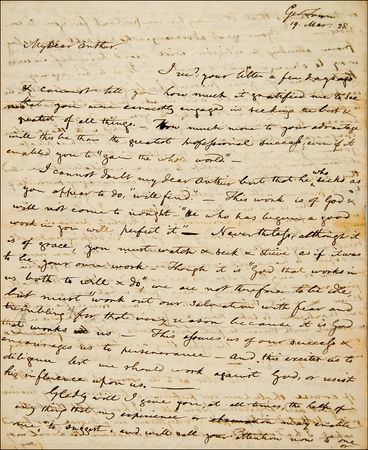 Geo Town
19 Mar. 28
My Dear Anthier.
I recd. your letter a few days ago
& cannot tell you how much it gratified me to see
that you were earnestly engaged in seeking the best &
greatest of all things. — How much more to your advantage
will this be than the greatest professional success, even if it
enabled you to "gain the whole world" —
I cannot doubt my dear Anthier but that he who seeks as
you appear to do, "will find" — This work is of God &
will not come to nought "He who has begun a good
work in you will perfect it" — Nevertheless, although it
is of grace, you must watch & seek & strive as if it was
to be your own work — Though it is "God that works in
us both to will & do", we are not therefore to be idle
but must work out our salvation with fear and
trembling for that very reason because it is God
that works in us — This assures us of our success &
encourages us to perseverance — And, this excites us to
diligence lest we should work against God, or resist
his influence upon us. —
Gladly will I give you, at all times, the help of
any thing that my experience or may enable
me, to suggest, and will call your attention now to one